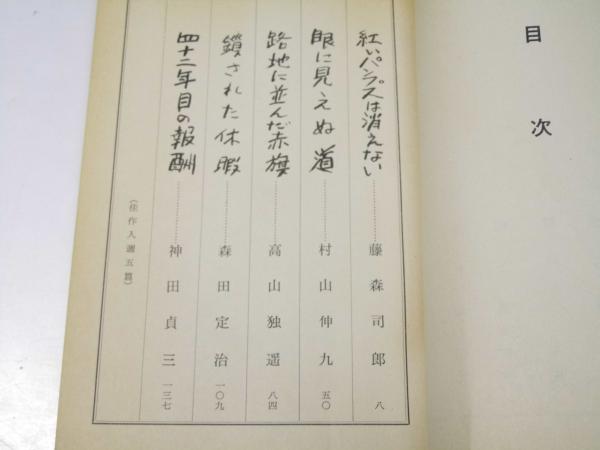 目次
紅いパンプスは消えない……藤森司郎 八
眼に見えぬ道……村山伸九 五〇
路地に並んだ赤旗……高山独遥 八四
鎖された休暇……森田定治 一〇九
四十二年目の報酬……神田貞三 一三七
(佳作入選五篇)